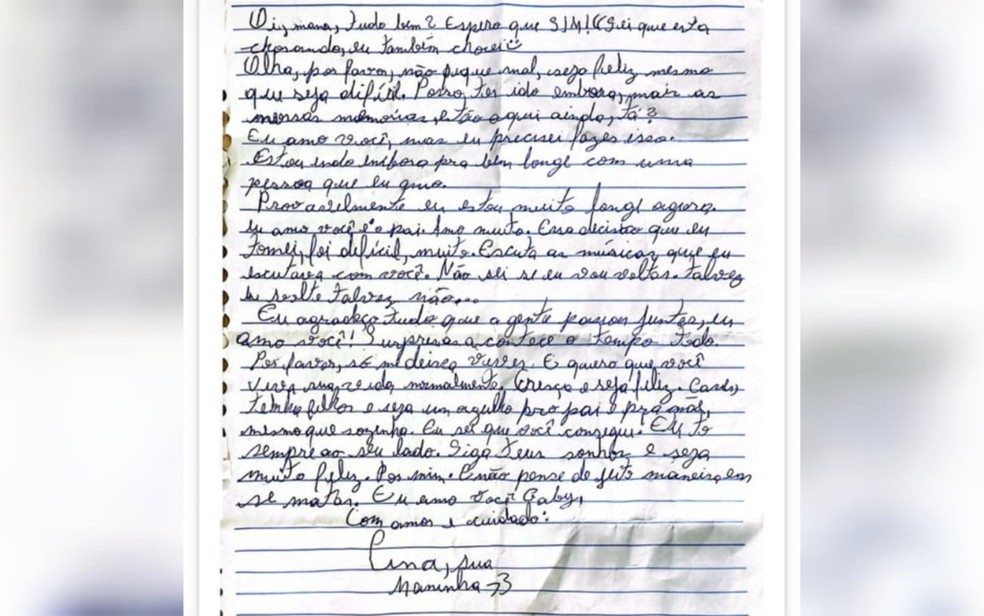 Oi, mana, tudo bem? Espero que SIM! (Sei que esta
chorando, eu também chorei☺
Olha, por favor, não fique mal, seja feliz mesmo
que seja difícil. Posso, ter ido embora, mais as
nossas memórias, estão aqui ainda, tá?
Eu amo você, mas eu precisei fazer isso.
Estou indo embora pra bem longe com uma
pessoa que eu amo.
Provavelmente eu estou muito longe agora.
Eu amo você e o pai. Amo muito. Essa decisão que eu
tomei, foi difícil, muito. Escuta as músicas que eu
escutava com você. Não sei se eu vou voltar. Talvez
eu volte talvez não...
Eu agradeço tudo que a gente passou juntas, eu
amo você! Surpresas acontece o tempo todo.
Por favor, só me deixa viver. E quero que você
viva sua vida normalmente. Cresça e seja feliz. Case,
tenha filhos e seja um orgulho pro pai e pra mãe,
mesmo que sozinha. Eu sei que você consegui. Eu to
sempre ao seu lado. Siga teus sonhos e seja
muito feliz. Por mim. E não pense de jeito maneira em
se matar. Eu amo você Gaby,
Com amor e cuidado:
sua
Maninha <3